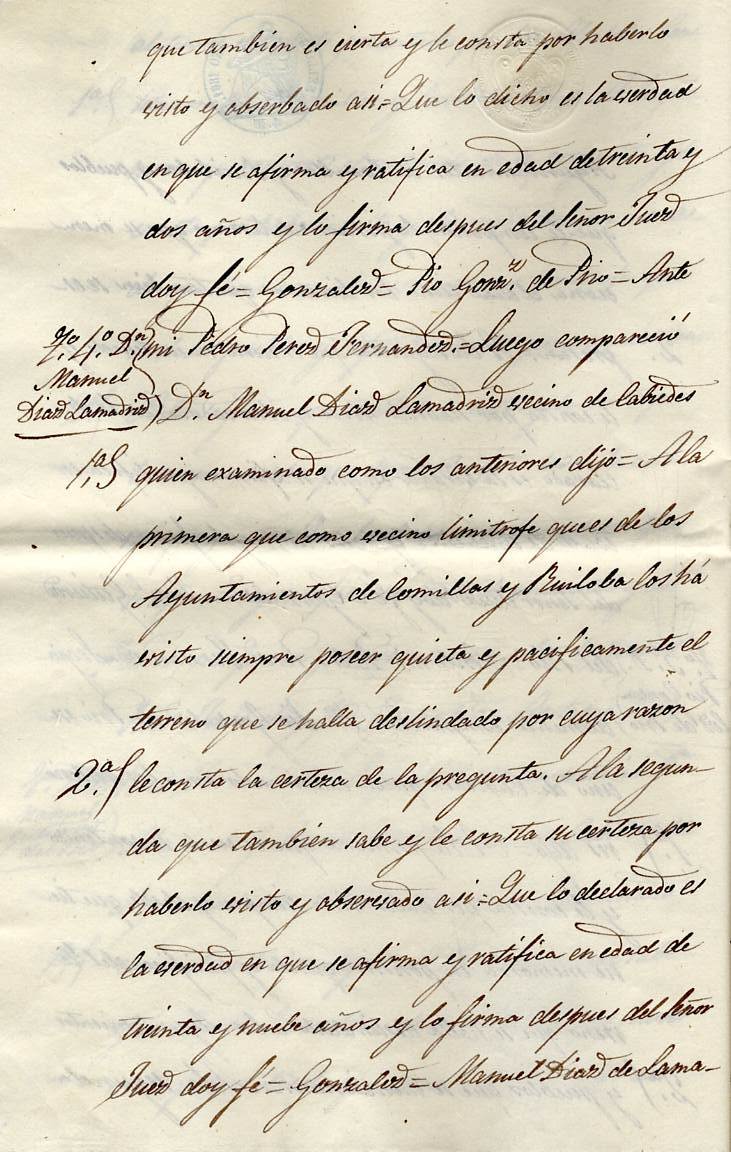 que tambien es cierta y le consta por haberlo
visto y obserbado asi = Que lo dicho es la verdad
en que se afirma y ratifica en edad de treinta y
dos años y lo firma despues del Señor Juez
doy fé = Gonzalez = Pio Gonz.z de Prio = Ante
mi Pedro Perez Fernandez. = Luego compareció
4.o D.n
Manuel
Diaz Lamadrid
D.n Manuel Diaz Lamadrid vecino de Cabiedes
1.a quien examinado como los anteriores dijo = A la
primera que como vecino limitrofe que es de los
Ayuntamientos de Comillas y Ruiloba los há
visto siempre poseer quieta y pacificamente el
terreno que se halla deslindado por cuya razon
2.a le consta la certeza de la pregunta. A la segun-
da que tambien sabe y le consta su certeza por
haberlo visto y observado asi = Que lo declarado es
la verdad en que se afirma y ratifica en edad de
treinta y nuebe años y lo firma despues del Señor
Juez doy fé = Gonzalez = Manuel Diaz de Lama-